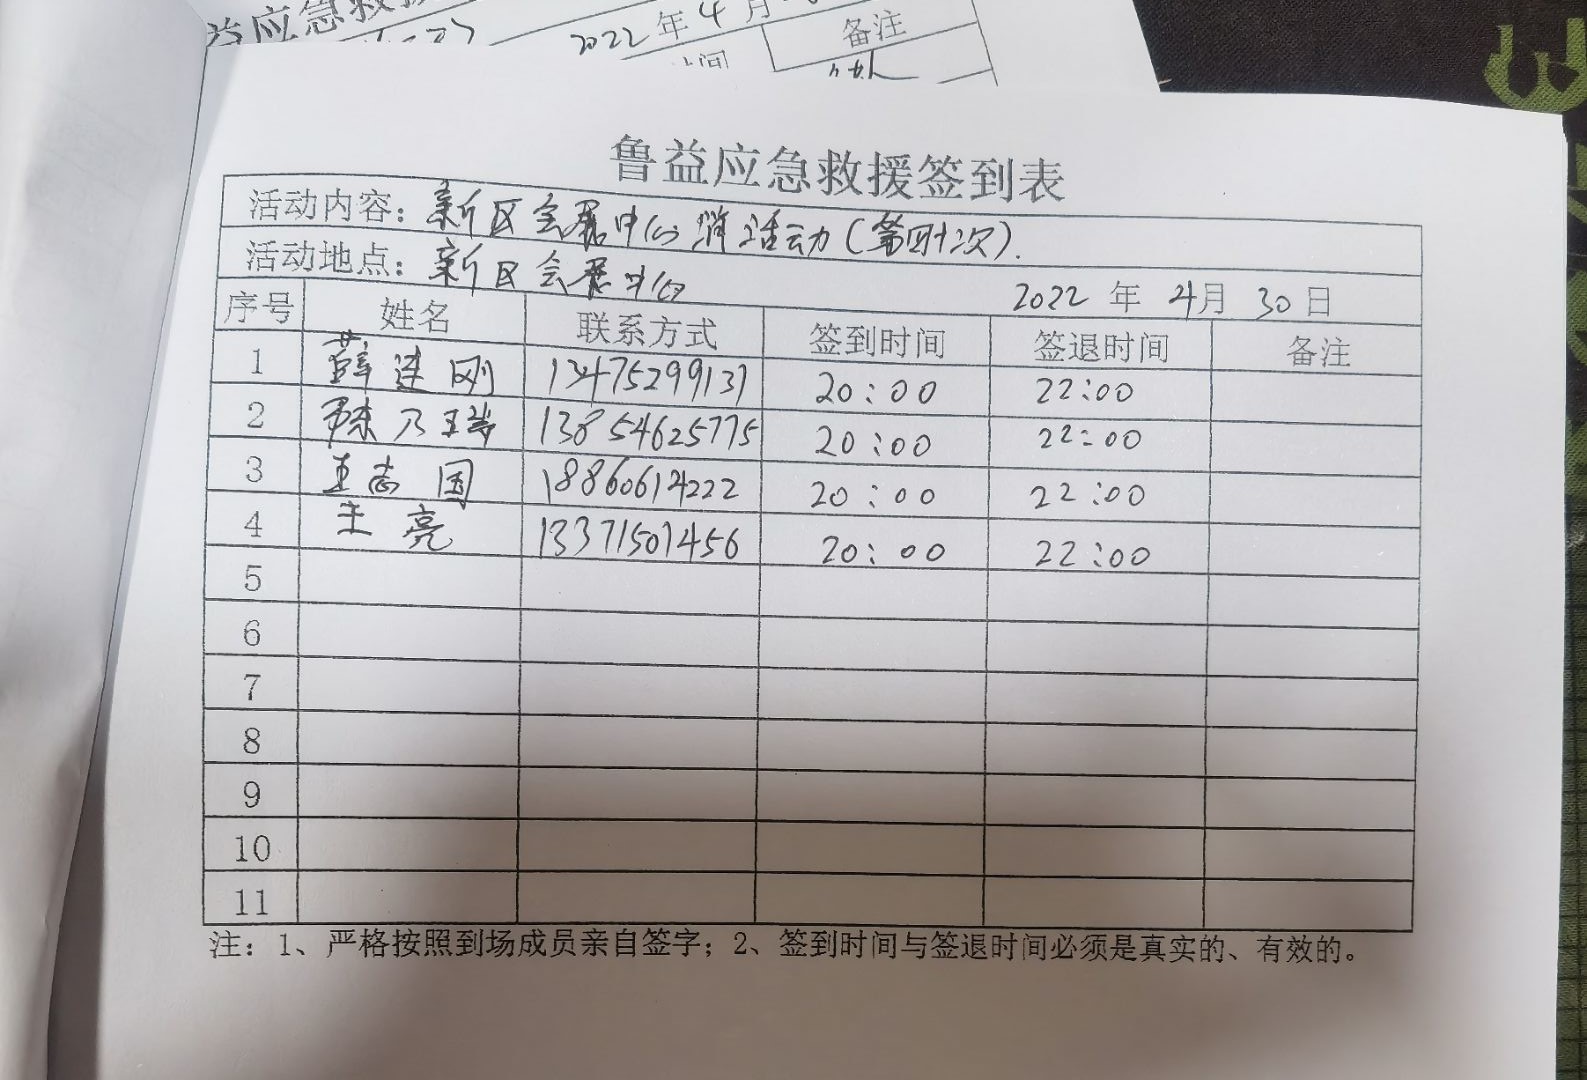 益应急救援
2022年4月
备注
鲁益应急救援签到表
活动内容：新区会展中心 活动（第四十次）.
活动地点：新区会展中心
2022 年 4月 30日
序号 姓名 联系方式 签到时间 签退时间 备注
1 薛连刚 13475299131 20:00 22:00
2 陈乃瑞 13854625775 20:00 22:00
3 王志国 18860614222 20:00 22:00
4 王亮 13371501456 20:00 22:00
5
6
7
8
9
10
11
注：1、严格按照到场成员亲自签字；2、签到时间与签退时间必须是真实的、有效的。